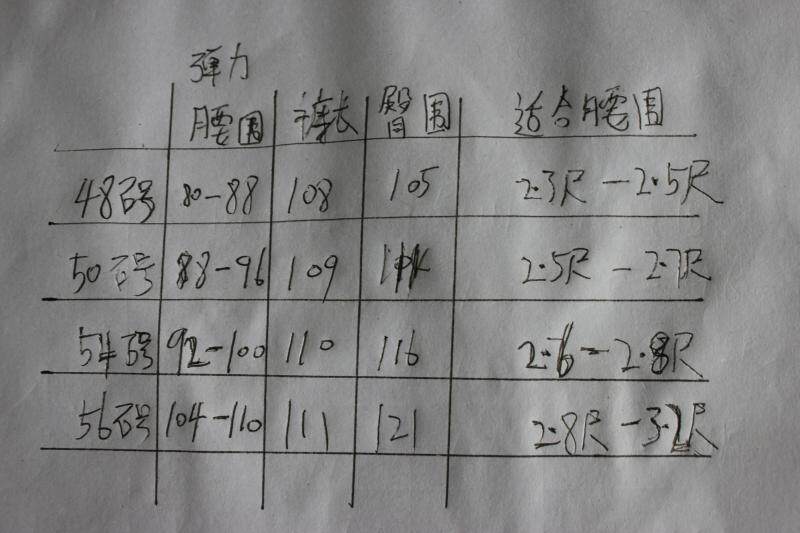 弹力
腰围 裤长 臀围 适合腰围
48码号 80-88 108 105 2.3尺-2.5尺
50码号 88-96 109 2.5尺-2.7尺
54码号 92-100 110 116 2.6-2.8尺
56码号 104-110 111 121 2.8尺-3.2尺